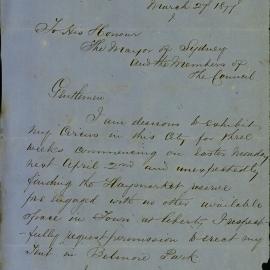 March 27 1877
To His Honour
The Mayor of Sydney
and the Members of
The Council
Gentlemen
I am desirous to exhibit
my Circus in this City for three
weeks commencing on Easter Monday
next April 2nd and unexpectedly
finding the Haymarket reserve
pre engaged with no other available
space in Town at liberty, I respect
-fully request permission to erect my
Tent in Belmore Park